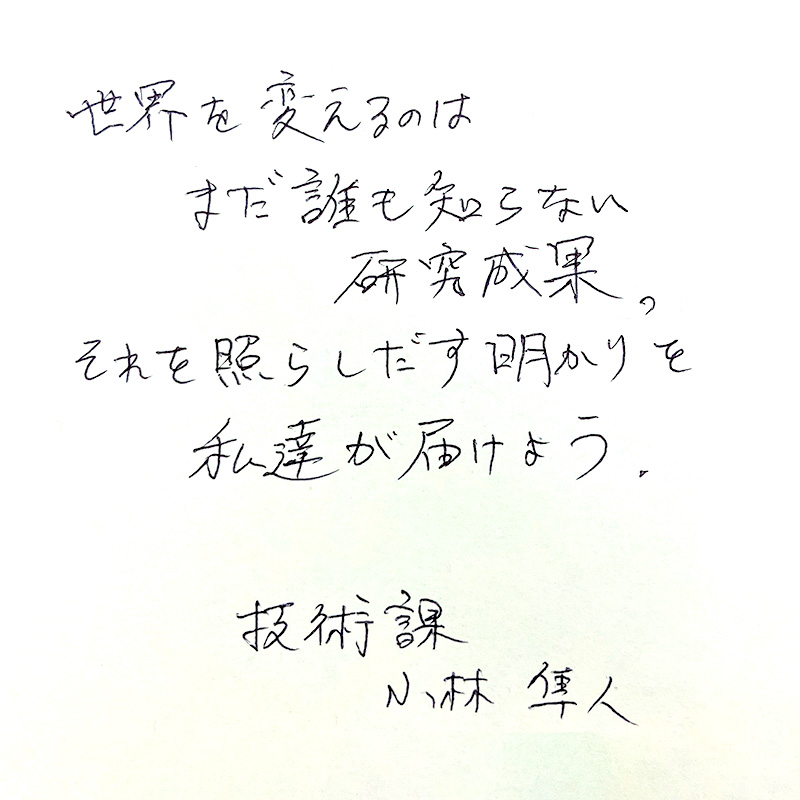 世界を変えるのは
まだ誰も知らない
研究成果。
それを照らしだす明かりを
私達が届けよう.
技術課
小林 隼人